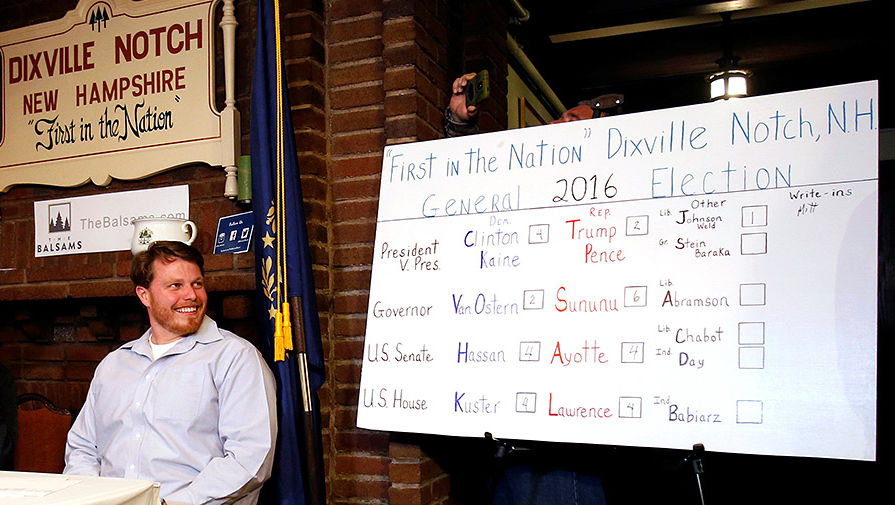 DIXVILLE NOTCH
NEW HAMPSHIRE
"First in the Nation"
THE
BALSAMS
TheBalsams.com
Follow Us
"FIRST IN THE NATION" DIXVILLE NOTCH, N.H.
GENERAL 2016 ELECTION
Write-ins
Mitt
Dem. Rep. Other
President Clinton 4 Trump 2 Lib. Johnson 1
V. Pres. Kaine Pence Weld
Gr. Stein
Baraka
Governor Van Ostern 2 Sununu 6 Lib. Abramson
U.S. Senate Hassan 4 Ayotte 4 Lib. Chabot
Ind. Day
U.S. House Kuster 4 Lawrence 4 Ind. Babiarz